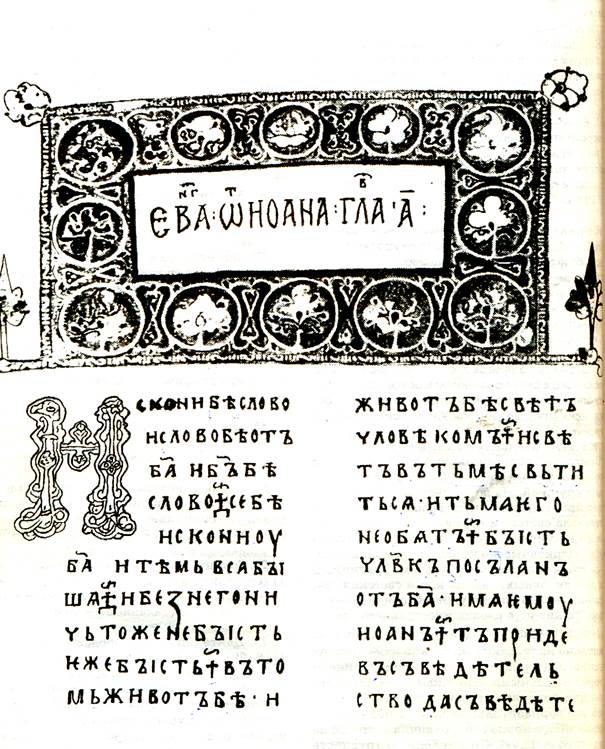 ЄВАНГ · Ѿ ИОАНА · ГЛАВ · А҃ :
ИСКОНИБѢСЛОВО
ИСЛОВОБѢОТЪ
БА҃ ИБЪ҃БѢ
СЛОВО СЕБѢ
ИСКОНИОУ
БА҃ ИТѢМЬВСѦБЫ
ШѦ ИБЕЗНЕГОНИ
ЧЬТОЖЕНЕБЫСТЬ
ѤЖЕБЫСТЬ ВЪТО
МЬЖИВОТЪБѢ · И
ЖИВОТЪБѢСВѢТЪ
ЧЛОВѢКОМЪ ИСВѢ
ТЪВЪТЬМѢСВЬТИ
ТЬСѦ · ИТЬМАѤГО
НЕОБѦТЪ БЫСТЬ
ЧЛВ҃КЪПОСЪЛАНЪ
ОТЪБА҃ · ИМѦѤМОУ
ИОАНЪ ТЪПРИДЕ
ВЪСЪВѢДѢТЕЛЬ
СТВО ДАСЪВѢДѢТЕ